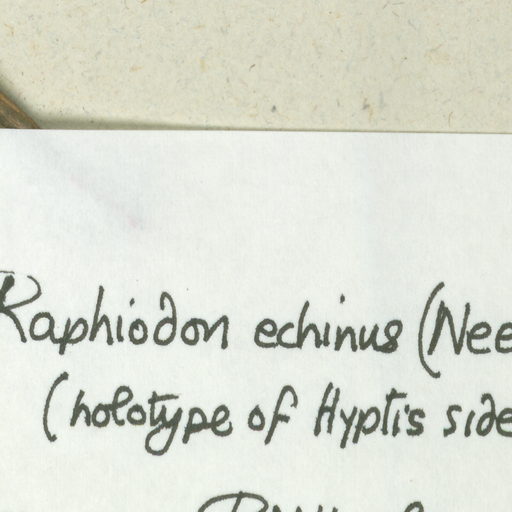 Raphiodon echinus (Nee
(holotype of Hyptis side